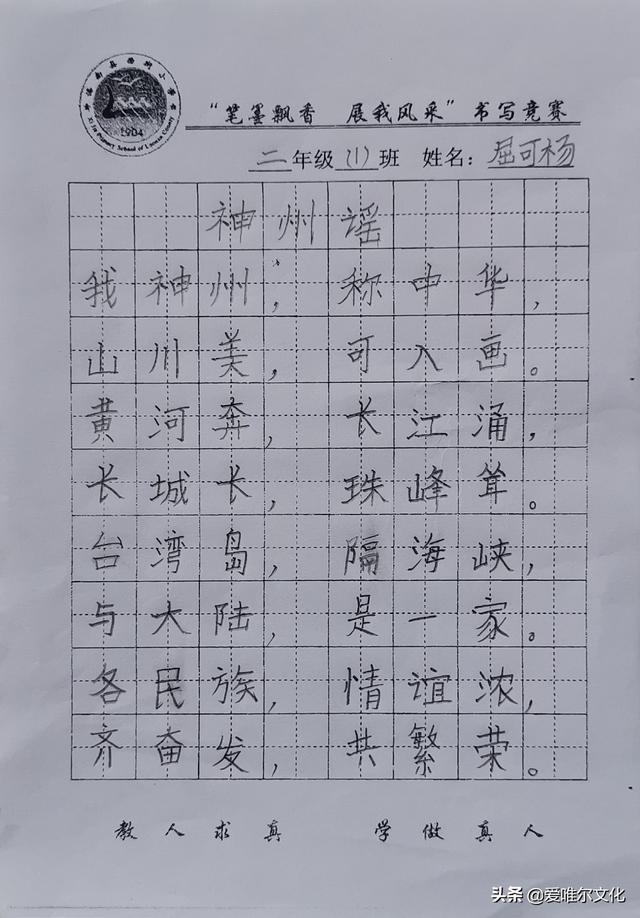 Xi Jie Primary School of Luonan County
1904
“笔墨飘香 展我风采”书写竞赛
二年级(1)班 姓名：屈可杨
神州谣
我神州，称中华，
山川美，可入画。
黄河奔，长江涌，
长城长，珠峰耸。
台湾岛，隔海峡，
与大陆，是一家。
各民族，情谊浓，
齐奋发，共繁荣。
教人求真 学做真人
头条 @爱唯尔文化